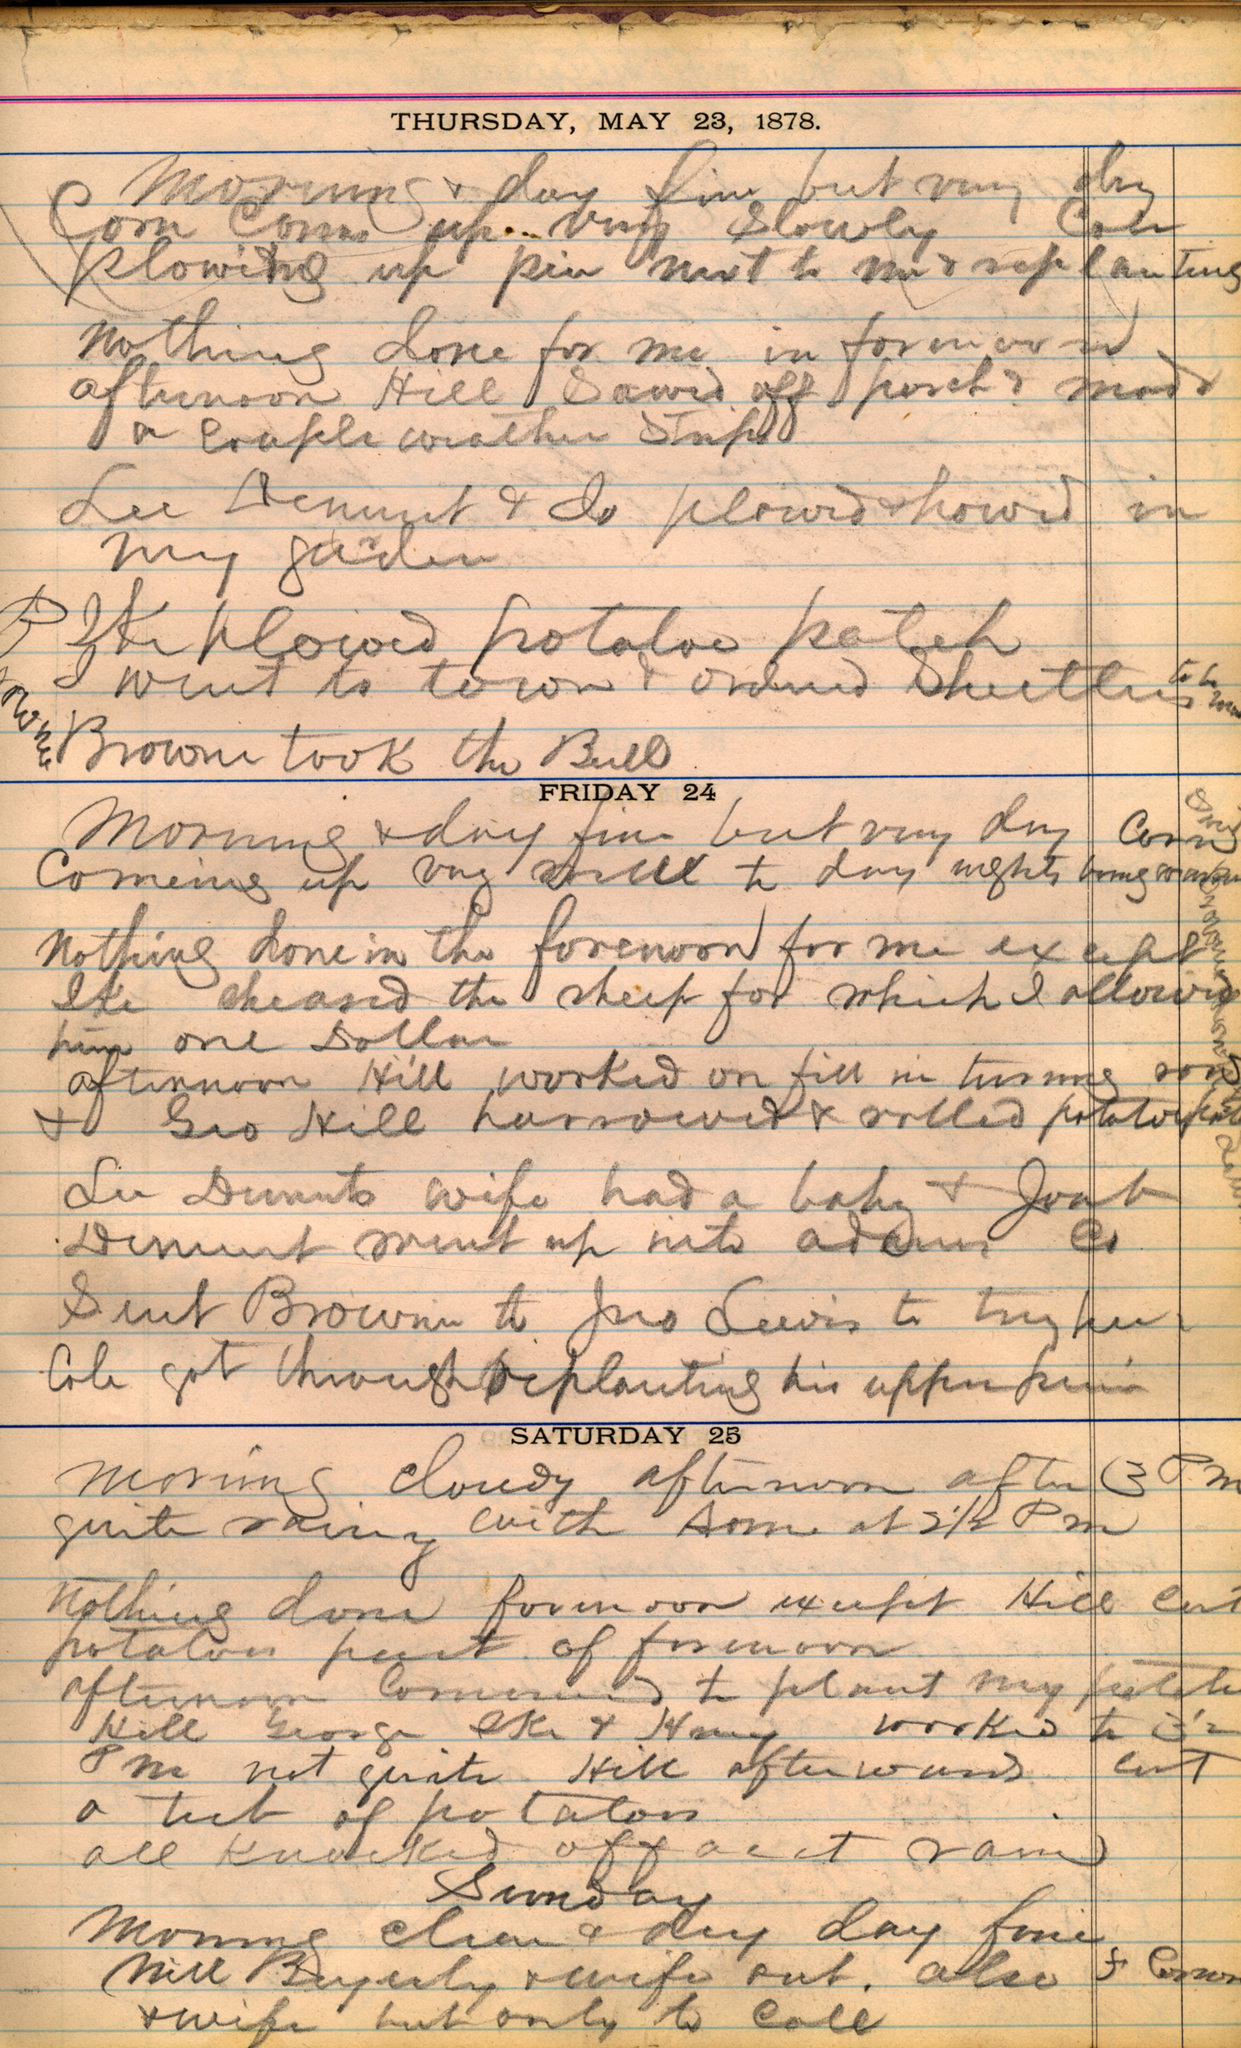 THURSDAY, MAY 23, 1878.
Morning & day fine but very dry
Corn Coms up very slowly Cole
plowing up pin next to me & replanting
Nothing done for me in forenoon
afternoon Hill Sawed off porch & made
a couple weather strips
Lee Dement & Jo plowed & howed in
my garden
Ike plowed potatoe patch
I went to town & ordered Shutters to be
Brown took the Bull
FRIDAY 24
Morning & day fine but very dry Corn
Comeing up very well to day nights being warm
Nothing done in the forenoon for me except
Ike sheared the sheep for which I allowed
him one Dollar
afternoon Hill worked on fill in turning row
& Geo Hill harrowed & rolled potatoe patch
Lee Dements wife had a baby &
Dement went up into adams Co
Sent Brown to Jno Lewis to try her
Cole got through replanting his upper
SATURDAY 25
Morning cloudy afternoon after 3 PM
quite rainy with some at 2 1/2 Pm
Nothing done forenoon except Hill cut
potatoes part of forenoon
afternoon Commenced to plant my potatoe
Hill George Ike & Henry worked to
Pm not quite Hill afterwards cut
a tub of potatoes
all knocked off acct rain
Sunday
Morning clear & dry day fine
Will Byerly & wife out. also
& wife but only to Call